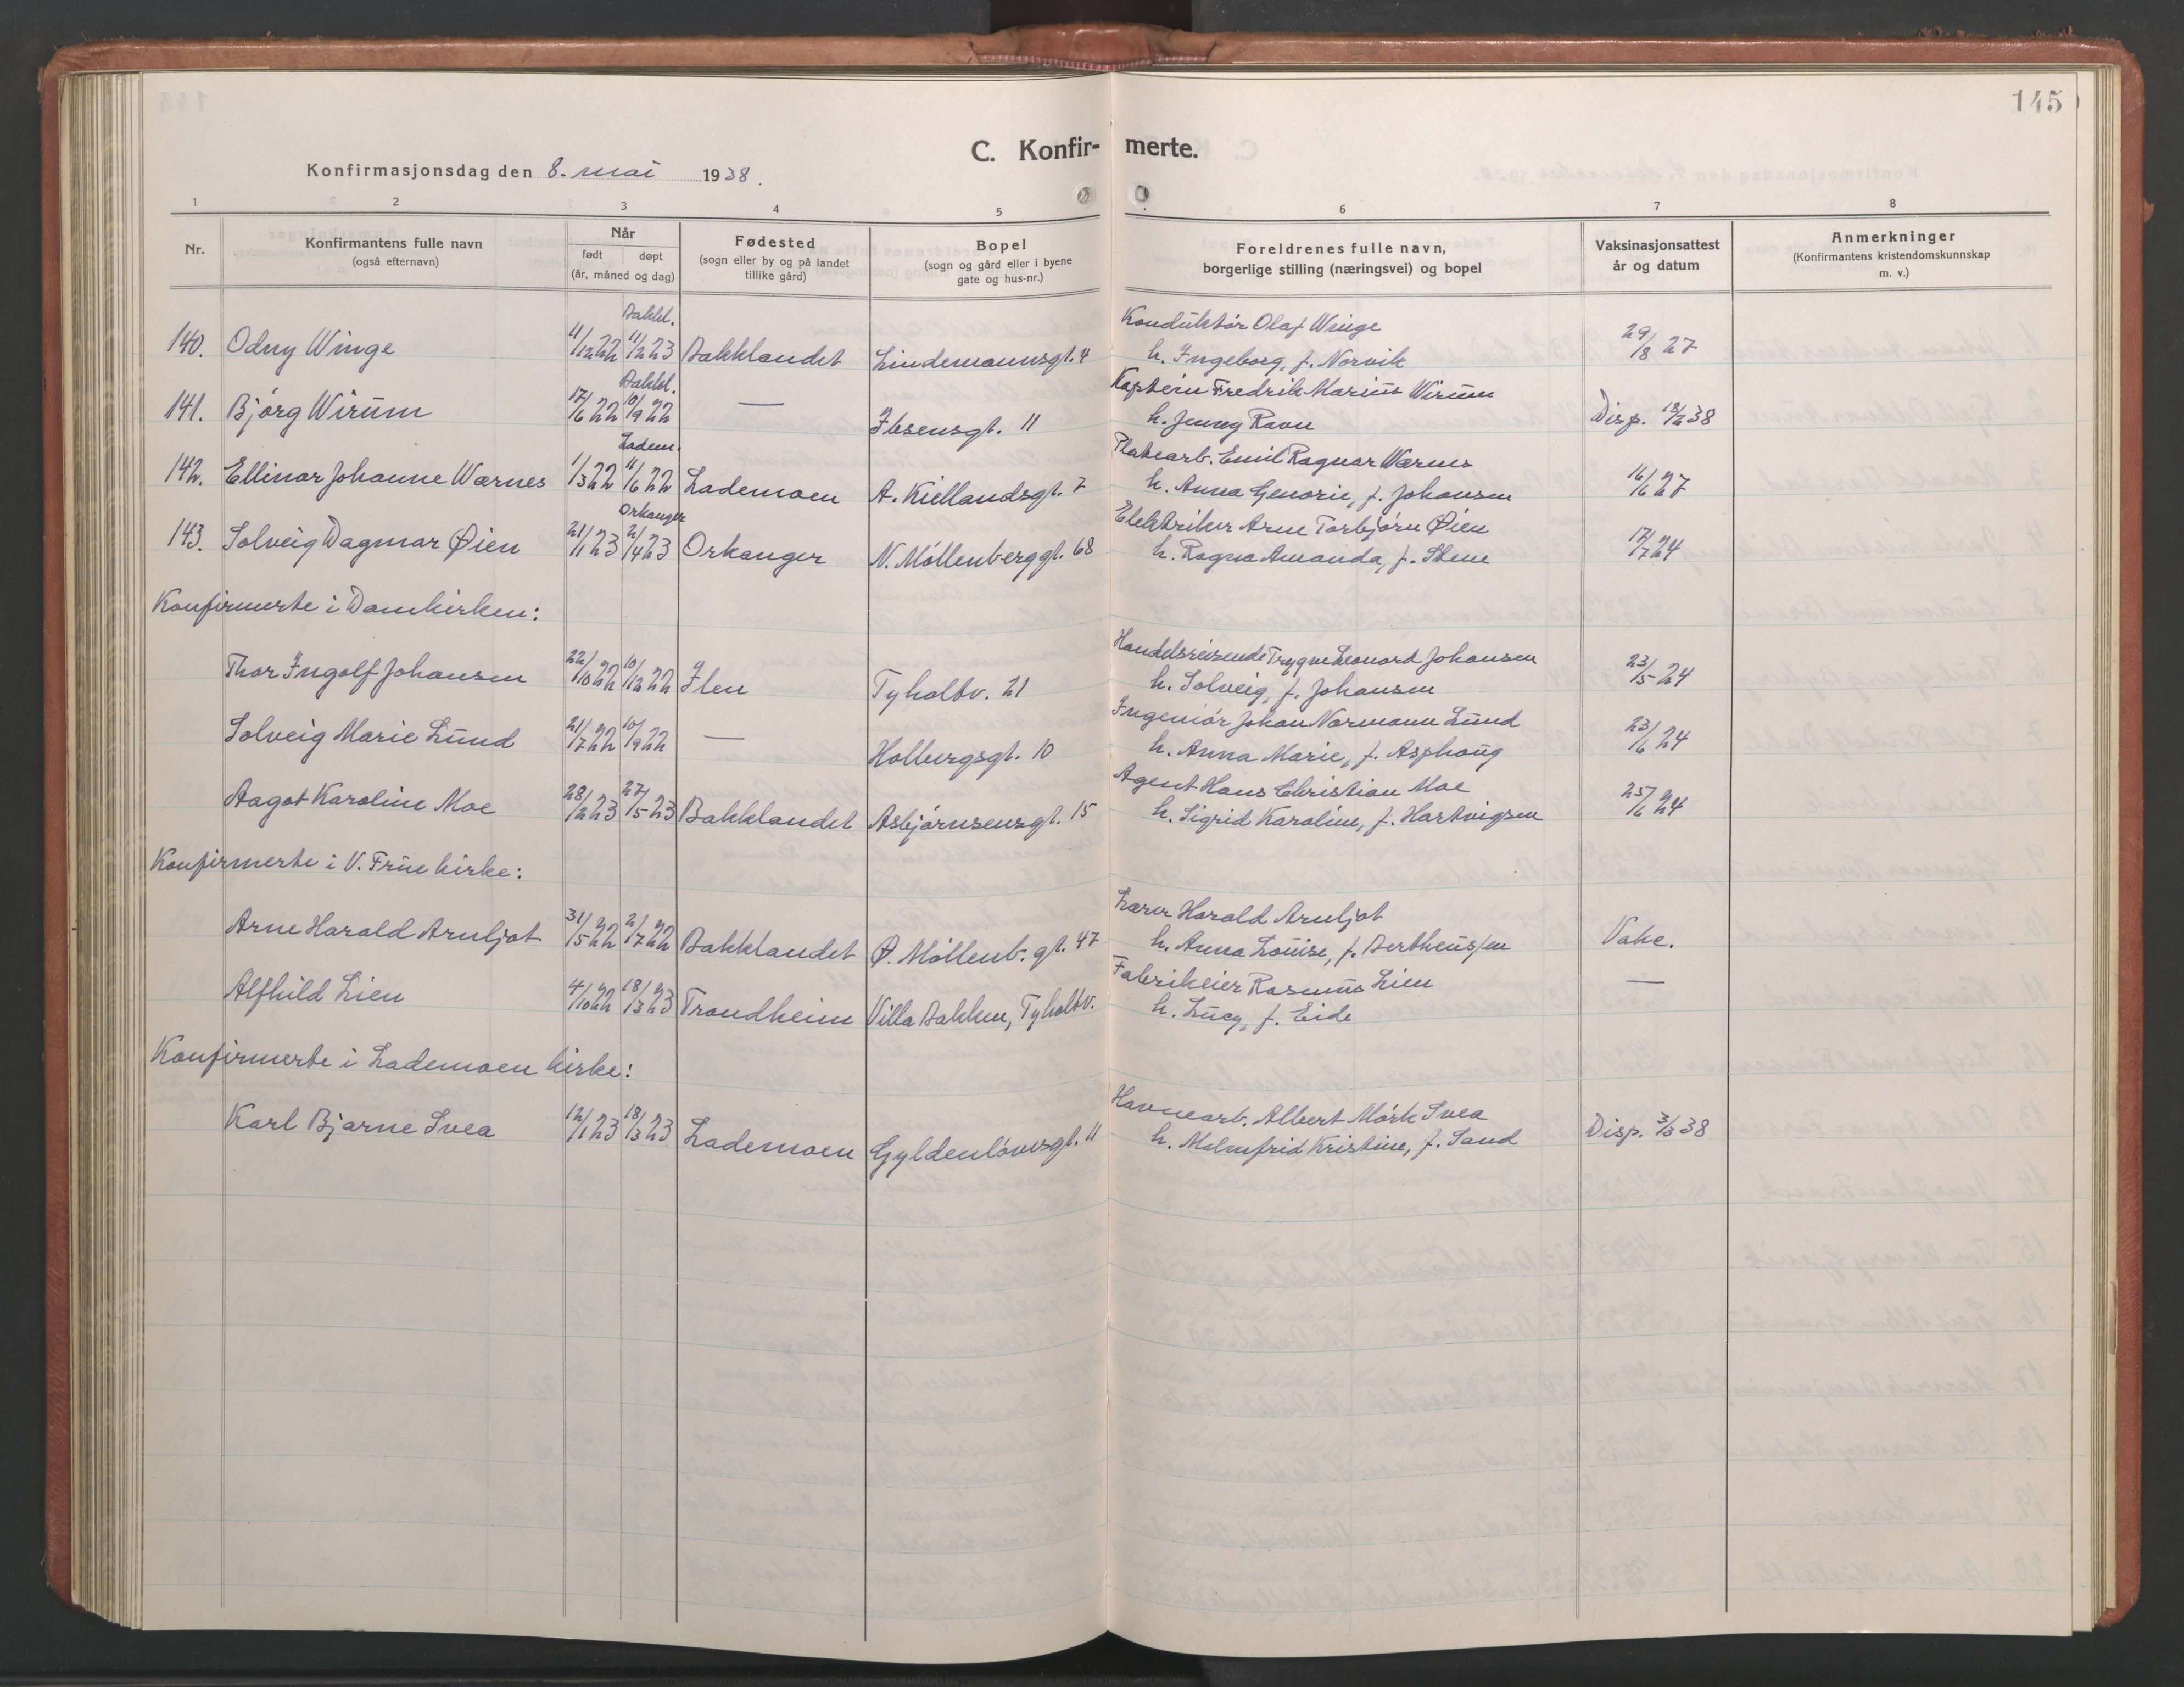 145
C. Konfir- merte.
Konfirmasjonsdag den 8. mai 1938.
1 2 3 4 5 6 7 8
Nr.
Konfirmantens fulle navn
(også efternavn)
Når
født døpt
(år, måned og dag)
Fødested
(sogn eller by og på landet
tillike gård)
Bopel
(sogn og gård eller i byene
gate og hus-nr.)
Foreldrenes fulle navn,
borgerlige stilling (næringsvei) og bopel
Vaksinasjonsattest
år og datum
Anmerkninger
(Konfirmantens kristendomskunnskap
m. v.)
Bakkl.
Konduktør Olaf Winge
140. Odny Winge 11/12 22 11/2 23 Bakklandet Lindemannsgt. 4 h. Ingeborg, f. Norvik 29/8 27
Bakkl.
Kaptein Fredrik Marius Wirum
141. Bjørg Wirum 17/6 22 10/9 22 — Ibsensgt. 11 h. Jenny Ravn Disp. 38
Ladem.
Platearb. Emil Ragnar Wærnes
142. Ellinor Johanne Wærnes 1/3 22 11/6 22 Lademoen A. Kiellandsgt. 7 h. Anna Genorie, f. Johansen 16/6 27
Orkanger
Elektriker Arne Torbjørn Øien
143. Solveig Dagmar Øien 21/1 23 2/4 23 Orkanger N. Møllenberggt. 68 h. Ragna Amanda, f. Stene 17/7 24
Konfirmerte i Domkirken:
Handelsreisende Trygve Leonard Johansen
Thor Ingolf Johansen 22/10 22 10/12 22 Ilen Tyholtv. 21 h. Solveig, f. Johansen 23/5 24
Ingeniør Johan Normann Lund
Solveig Marie Lund 21/7 22 10/9 22 — Holbergsgt. 10 h. Anna Marie, f. Asphoug 23/6 24
Agent Hans Christian Moe
Aagot Karoline Moe 28/2 23 27/5 23 Bakklandet Asbjørnsensgt. 15 h. Sigrid Karoline, f. Hartvigsen 25/6 24
Konfirmerte i V. Frue kirke:
Lærer Harald Arnljot
Arne Harald Arnljot 31/5 22 2/7 22 Bakklandet Ø. Møllenb. gt. 47 h. Anna Louise, f. Bertheussen Vakc.
Fabrikeier Rasmus Lien
Alfhild Lien 4/10 22 18/3 23 Trondheim Villa Bakken, Tyholtv. h. Lucy, f. Eide —
Konfirmerte i Lademoen kirke:
Havnearb. Albert Mørk Svea
Karl Bjarne Svea 12/1 23 18/3 23 Lademoen Gyldenløvesgt. 11 h. Malmfrid Kristine, f. Sand Disp. 3/3 38